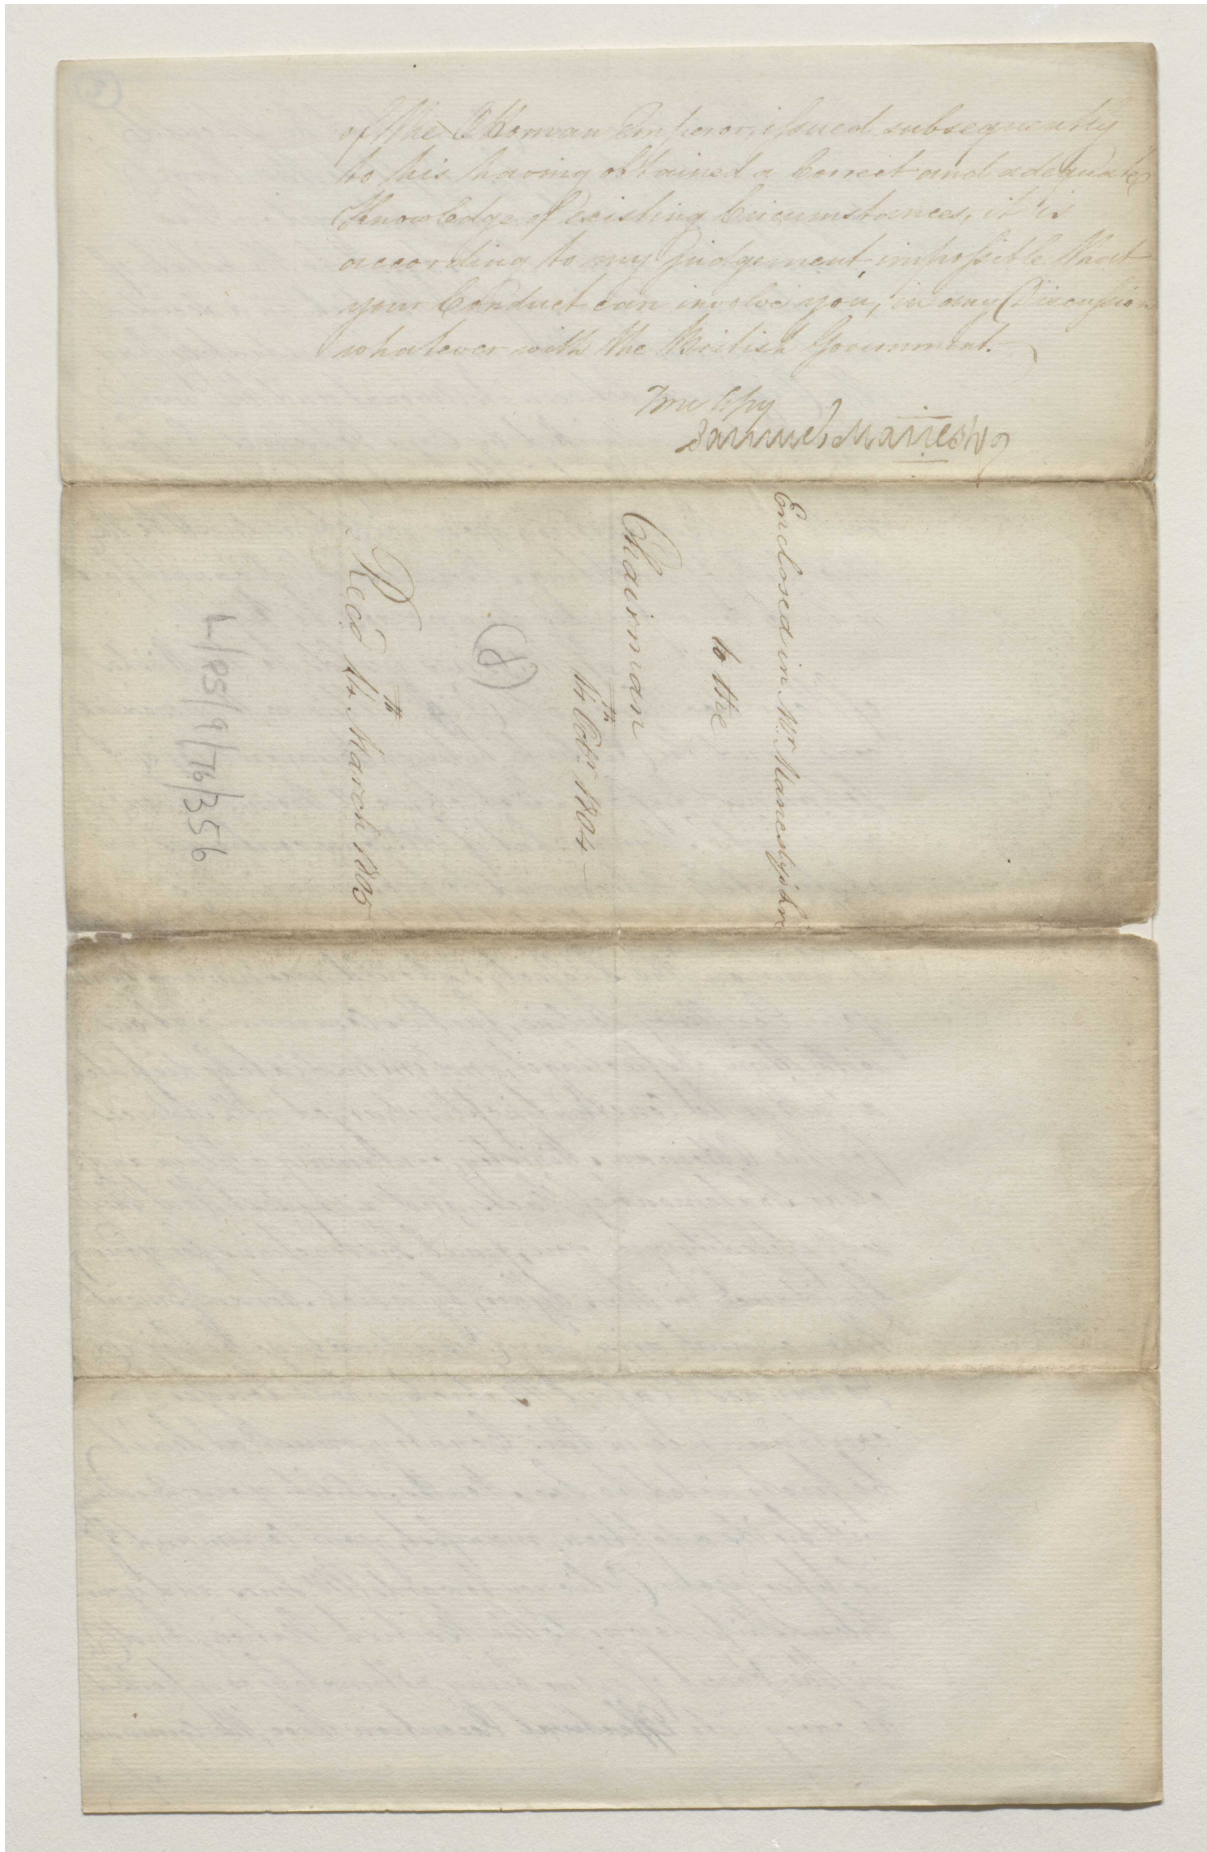 of the Ottoman Emperor, issued subsequently
to his having obtained a Correct and adequate
Knowledge of existing Circumstances, it is
according to my Judgement, impossible that
your Conduct can involve you, in any Discussion
whatever with the British Government.
True Copy
Samuel Manesty
Enclosed in Mr. Manesty's
to the
Chairman
14th Octr. 1804
(8)
Recd 14th March 1805
L/PS/9/76/356